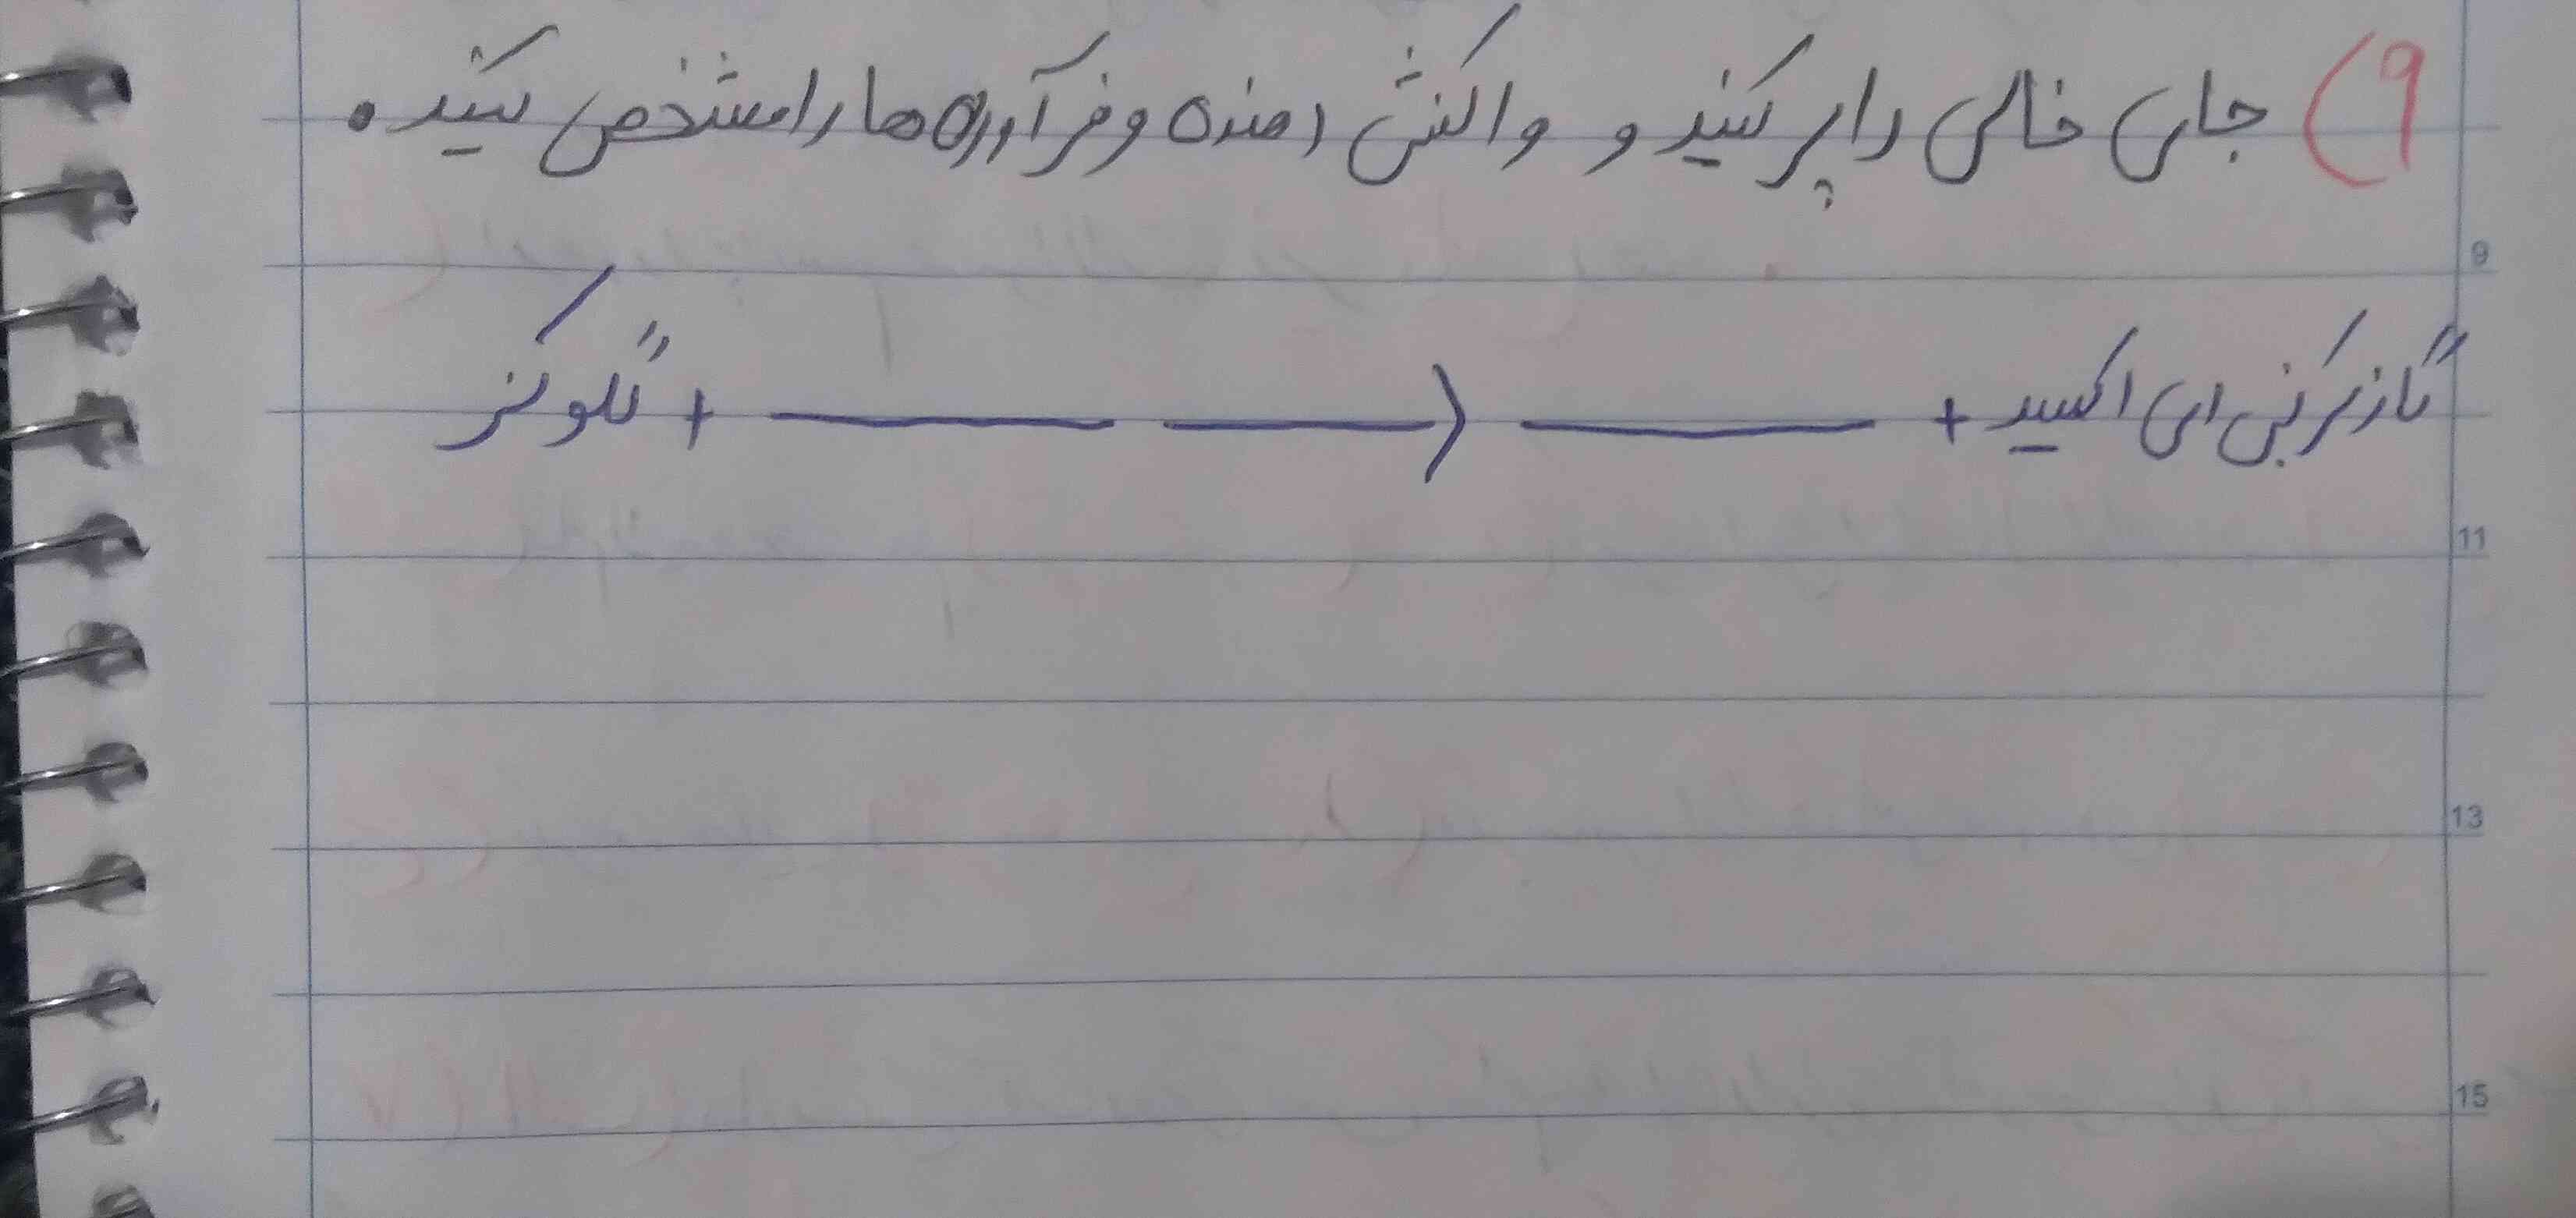 ۹) جای خالی را پر کنید و واکنش دهنده و فرآورده ها را مشخص کنید.
9
گلوکز + ـــــــ ـــــــ> ـــــــ + گاز کربن دی اکسید
11
13
15